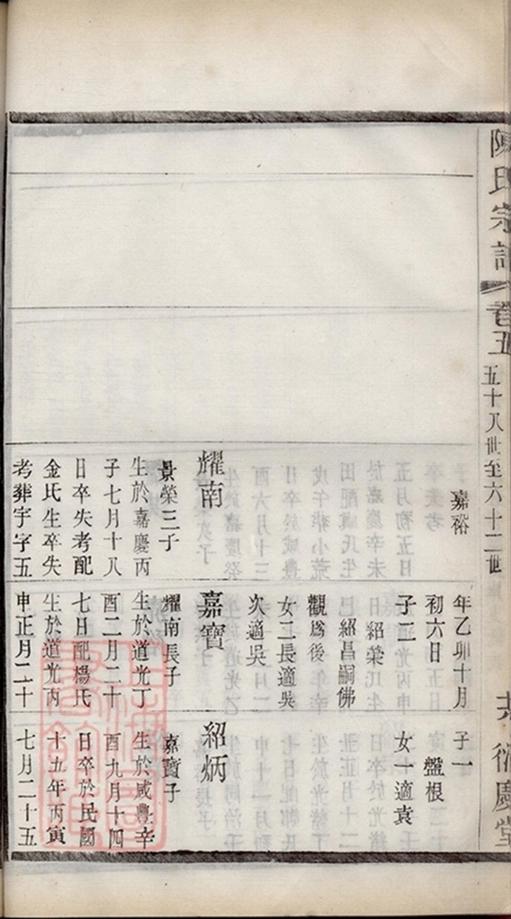 陳氏宗譜
卷五
五十八世至六十二世
衍慶堂
嘉裕
耀南
景榮三子
生於嘉慶丙
子七月十八
日卒失考配
金氏生卒失
考葬宇字五
年乙卯十月
初六日
子二
紹榮
紹昌嗣佛
觀爲後
女二長適吳
次適吳
嘉寶
耀南長子
生於道光丁
酉二月二十
七日配楊氏
生於道光丙
申正月二十
子一
盤根
女一適袁
紹炳
嘉寶子
生於咸豐辛
酉九月十四
日卒於民國
十五年丙寅
七月二十五